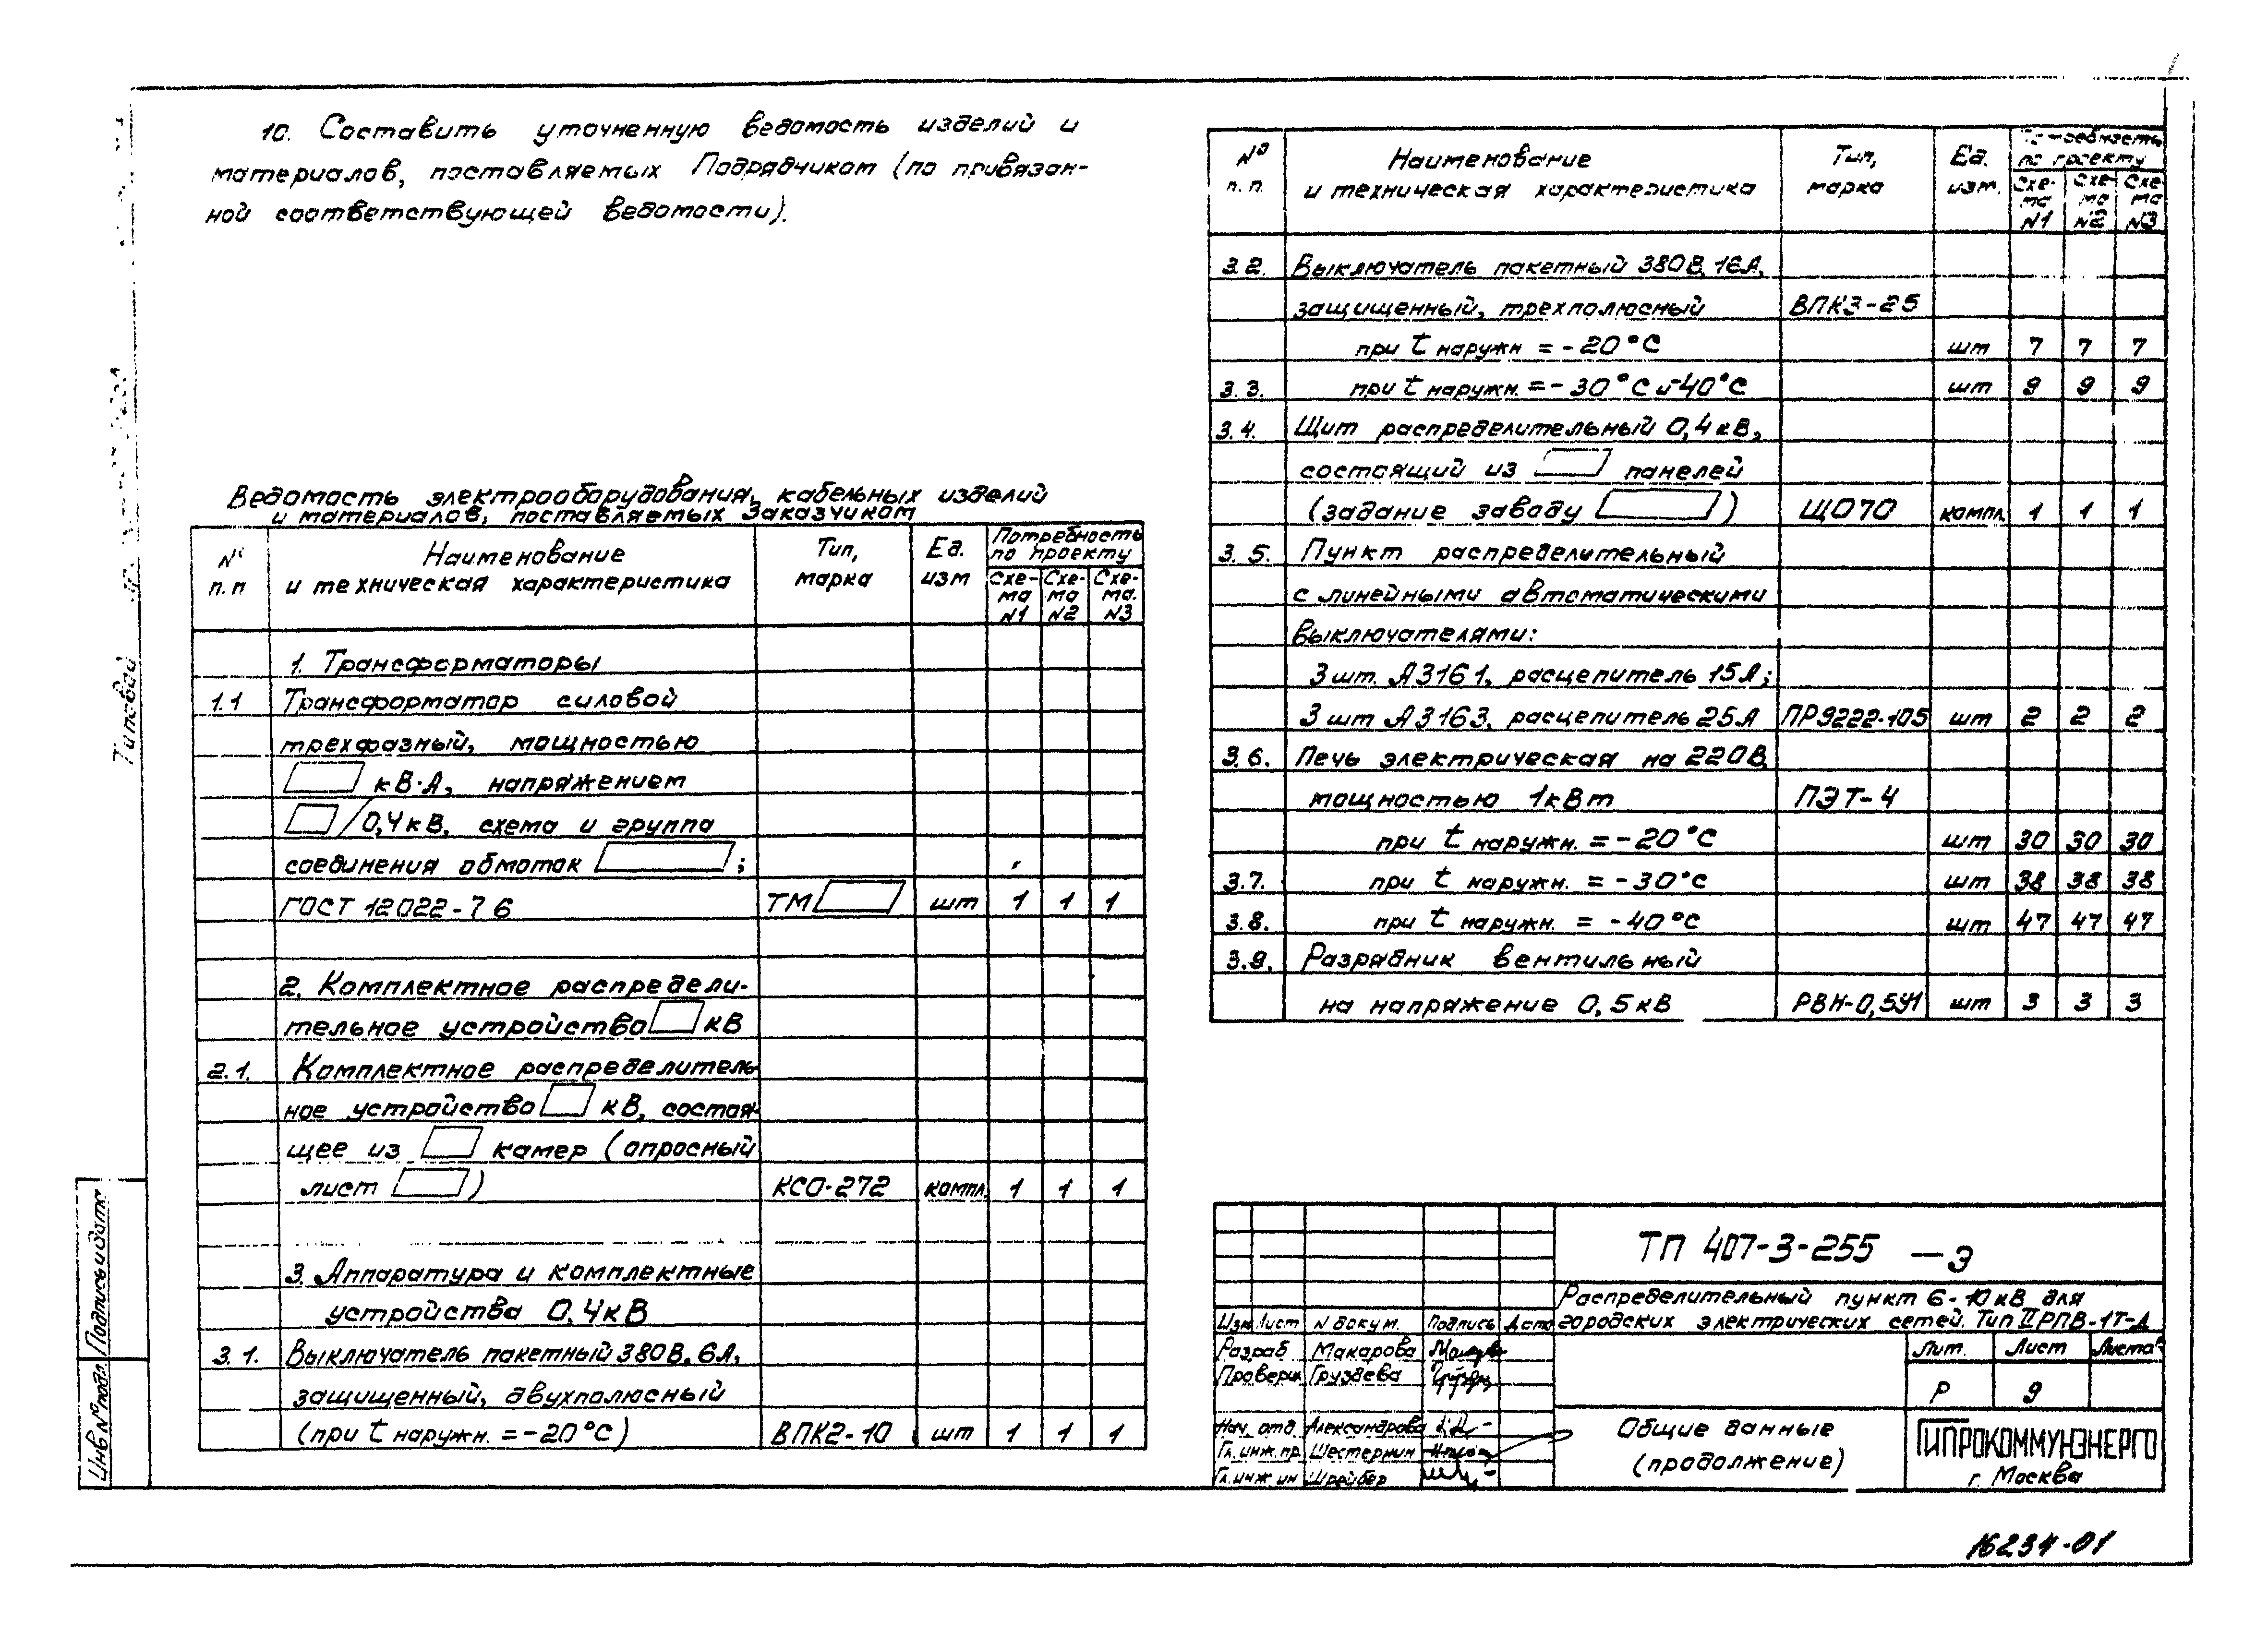 10. Составить уточненную ведомость изделий и
материалов, поставляемых Подрядчиком (по привязан-
ной соответствующей ведомости).
Ведомость электрооборудования, кабельных изделий
и материалов, поставляемых Заказчиком
№ п.п Наименование и техническая характеристика Тип, марка Ед. изм Потребность по проекту
Схе-ма N1 Схе-ма N2 Схе-ма. N3
1. Трансформаторы
1.1 Трансформатор силовой
трехфазный, мощностью
кВ·А, напряжением
/0,4кВ, схема и группа
соединения обмоток ;
ГОСТ 12022-76 ТМ шт 1 1 1
2. Комплектное распредели-
тельное устройство кВ
2.1. Комплектное распределитель-
ное устройство кВ, состоя-
щее из камер (опросный
лист ) КСО-272 компл. 1 1 1
3. Аппаратура и комплектные
устройства 0,4кВ
3.1. Выключатель пакетный 380В, 6А,
защищенный, двухполюсный
(при t наружн. = -20°С) ВПК2-10 шт 1 1 1
№ п.п. Наименование и техническая характеристика Тип, марка Ед. изм. Потребность по проекту
Схе-ма N1 Схе-ма N2 Схе-ма N3
3.2. Выключатель пакетный 380В, 16А,
защищенный, трехполюсный ВПК3-25
при t наружн = -20°С шт 7 7 7
3.3. при t наружн. = -30°С и -40°С шт 9 9 9
3.4. Щит распределительный 0,4кВ,
состоящий из панелей
(задание заводу ) ЩО70 компл. 1 1 1
3.5. Пункт распределительный
с линейными автоматическими
выключателями:
3шт. А3161, расцепитель 15А;
3шт А3163, расцепитель 25А ПР9222-105 шт 2 2 2
3.6. Печь электрическая на 220В,
мощностью 1кВт ПЭТ-4
при t наружн. = -20°С шт 30 30 30
3.7. при t наружн. = -30°С шт 38 38 38
3.8. при t наружн. = -40°С шт 47 47 47
3.9. Разрядник вентильный
на напряжение 0,5кВ РВН-0,5У1 шт 3 3 3
ТП 407-3-255 -Э
Распределительный пункт 6-10кВ для
городских электрических сетей. Тип II РПВ-1Т-А
Изм. Лист N докум. Подпись Дата
Разраб Макарова
Проверил Груздева
Нач. отд Александрова
Гл. инж. пр. Шестернин
Гл. инж. ин Шрейбер
Лит. Лист Листов
Р 9
Общие данные
(продолжение)
ГИПРОКОММУНЭНЕРГО
г. Москва
Типовой
Инв № подл. Подпись и дата
16234-01